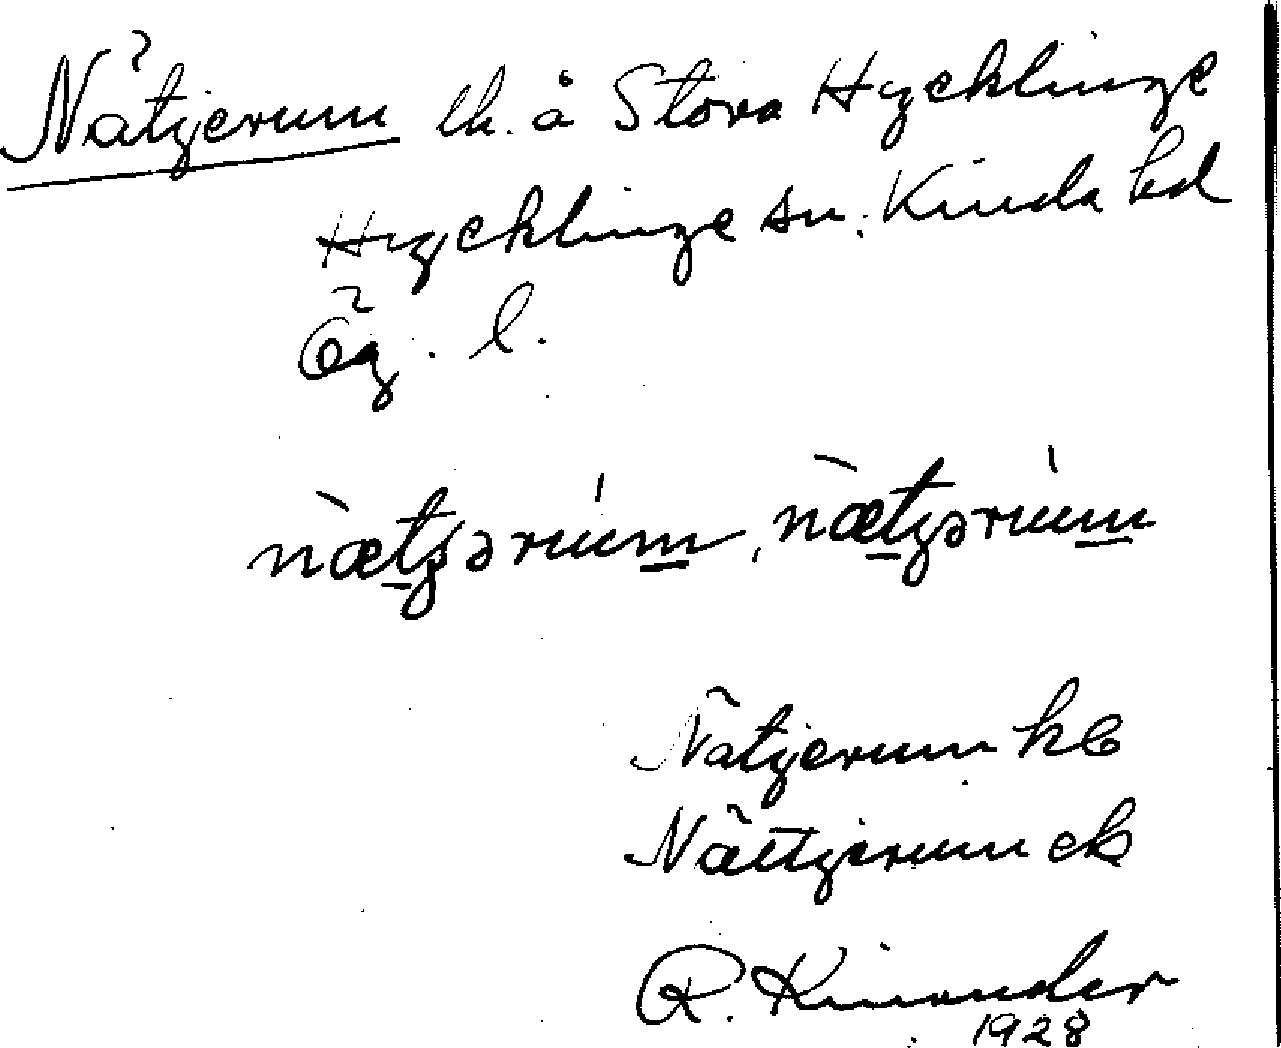 Nätjerum lh. å Stora Hycklinge
Hycklinge sn. Kinda hd
Ög. l.
nætjərùm, nætjərùm
Nätjerum kb
Nättjerum ek
R. Kinander
1928